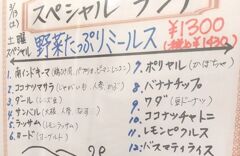 3/13
(土)
スペシャル ラン
土曜
スペシャル
野菜たっぷりミールス
¥1300
(税込 ¥1430)
1. 南インドキーマ
2. ココナツサラダ (じゃがいも、人参
3. ダール (レンズ豆)
4. サンバル (大根、人参、なす)
5. ラッサム (レモンラッサム)
6. カード (ヨーグルト)
7. ポリヤル (かぼちゃ)
8. バナナチップ
9. ワダ (豆ドーナツ)
10. ココナッツチャトニ
11. レモンピクルス
12. バスマティライス